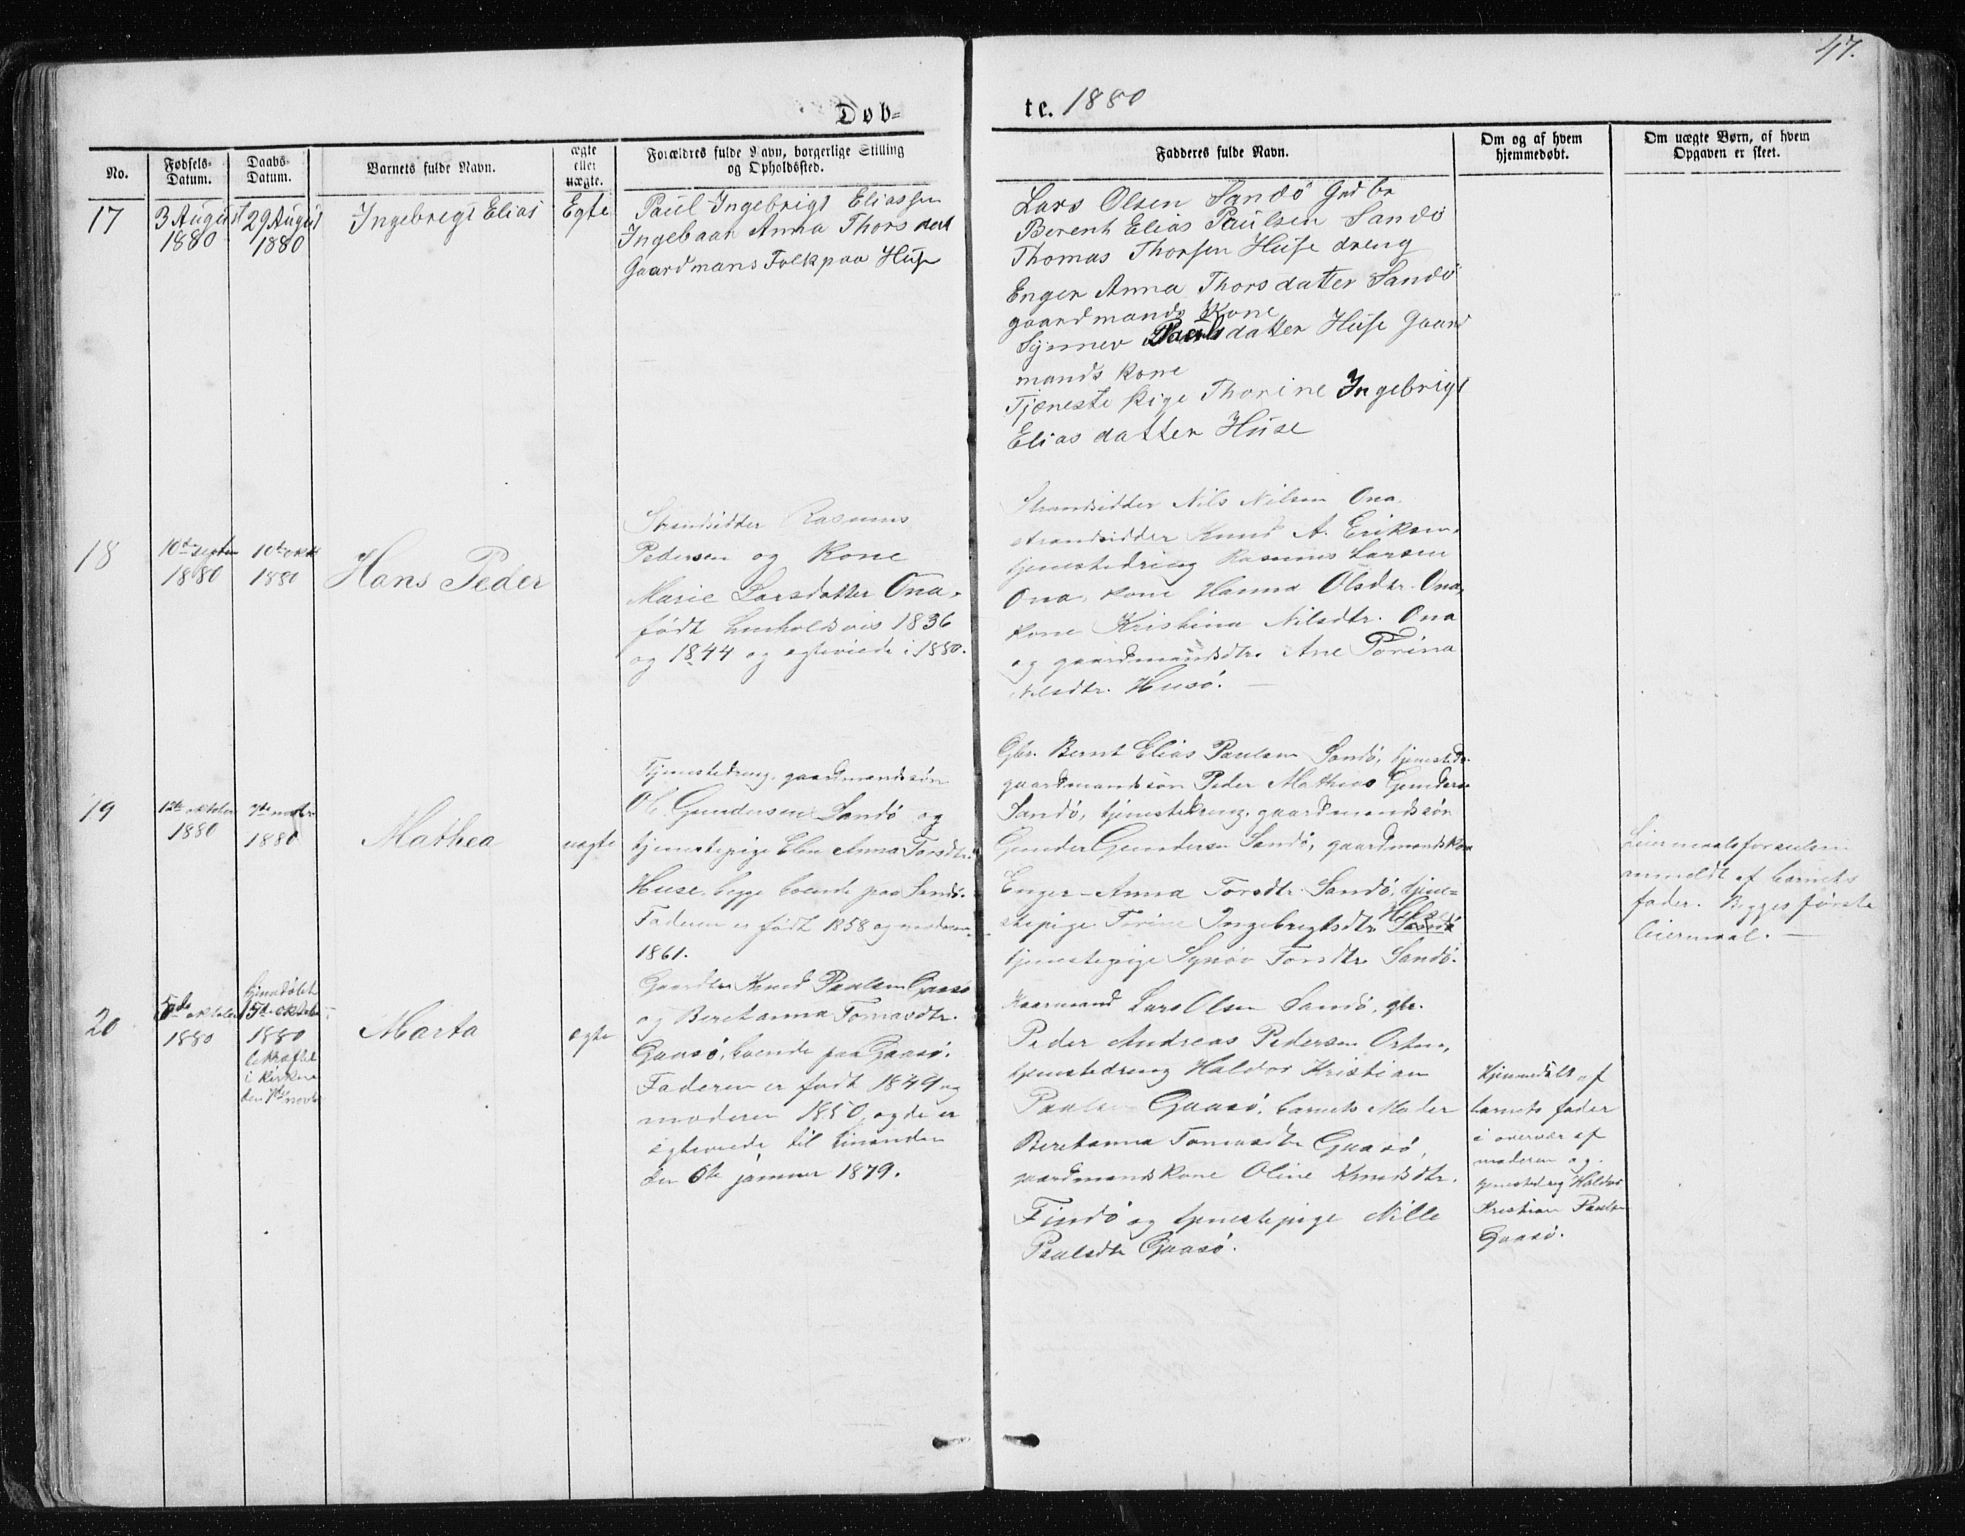 47.
Døb-
te. 1880
No.
Fødsels-
Datum.
Daabs-
Datum.
Barnets fulde Navn.
ægte
eller
uægte.
Forældres fulde Navn, borgerlige Stilling
og Opholdssted.
Fadderes fulde Navn.
Om og af hvem
hjemmedøbt.
Om uægte Børn, af hvem
Opgaven er skeet.
17
3 August
1880
29 August
1880
Ingebrigt Elias
Egte
Paul Ingebrigt Eliassen
Ingebaar Anna Thors datt
Gaardmans Folk paa Huse
Lars Olsen Sandö Grdbr
Berent Elias Paulsen Sandö
Thomas Thorsen Huse dreng
Enger Anna Thorsdatter Sandö
gaardmands Kone
Synnev Paulsdatter Huse Gaard
mands kone
Tjæneste pige Thorine Ingebrigt
Eliasdatter Huse
18
10de septbr
1880
10de oktbr
1880
Hans Peder
Strandsidder Rasmus
Pedersen og Kone
Marie Larsdatter Ona.
født henholdsvis 1836
og 1844 og egteviede i 1880.
Strandsidder Nils Nilsen Ona
strandsidder Knud A. Eriksen,
tjenestedreng Rasmus Larsen
Ona, kone Hanna Olsdtr. Ona,
kone Kristina Nilsdtr. Ona
og gaardmandsdtr. Ane Torina
Nilsdtr. Husö.
19
12te oktober
1880
7de novbr
1880
Mathea
uegte
Tjenestedreng, gaardmandssön
Ole Gundersen Sandö og
tjenestepige Elen Anna Torsdtr.
Huse, begge boende paa Sandö.
Faderen er født 1858 og moderen
1861.
Gbr. Bernt Elias Paulsen Sandö, tjenestedr.
gaardmandssön Peder Mathias Gunders.
Sandö, tjenestedreng, gaardmandssön
Gunder Gundersen Sandö, gaardmandskone
Enger-Anna Torsdtr. Sandö, tjene-
stepige Torine Ingebrigtsdtr. Huse
tjenestepige Synöv Torsdtr Sandö.
Leiermaalsforseelsen
anmeldt af barnets
fader. Begges første
leiermaal.
20
5de oktober
1880
hjemmedøbt
15de oktober
1880
bekræftet
i kirken
den 7de novbr
Marta
egte
Gaardbr. Knud Paulsen Gaasö
og Beretanna Tomasdtr.
Gaasö, boende paa Gaasö.
Faderen er født 1849 og
moderen 1850, og de er
egteviede til hinanden
den 6te januar 1879.
Kaarmand Lars Olsen Sandö, gbr.
Peder Andreas Pedersen Orten,
tjenestedreng Haldor Kristian
Paulsen Gaasö, barnets Moder
Beretanna Tomasdtr Gaasö,
gaardmandskone Oline Knudsdtr.
Findö og tjenestepige Nille
Paulsdtr Gaasö.
Hjemmedøbt af
barnets fader
i overvær af
moderen og
tjenestedreng Haldor
Kristian Paulsen
Gaasö.